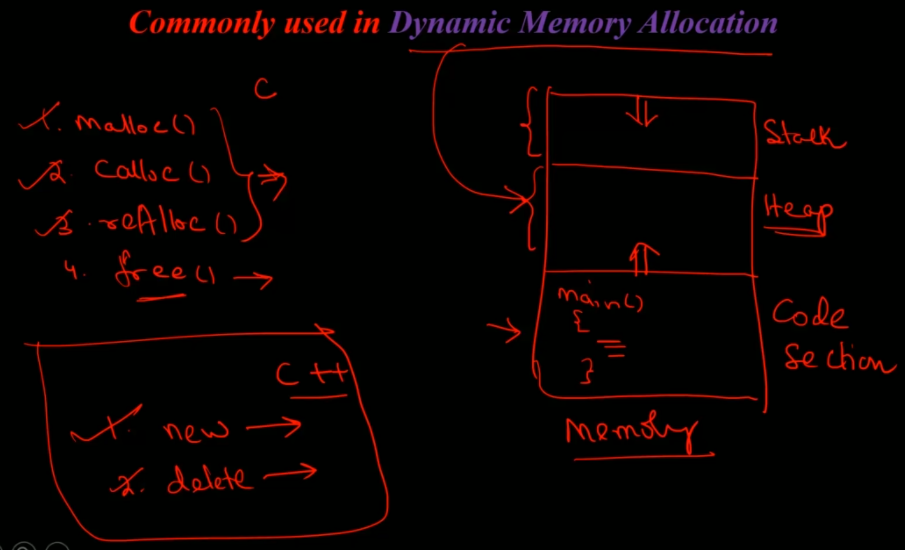 Commonly used in Dynamic Memory Allocation
C
1. Malloc()
2. Calloc()
3. reAlloc()
4. free()
C++
1. new
2. delete
Stack
Heap
main()
{
}
Code
Section
Memory